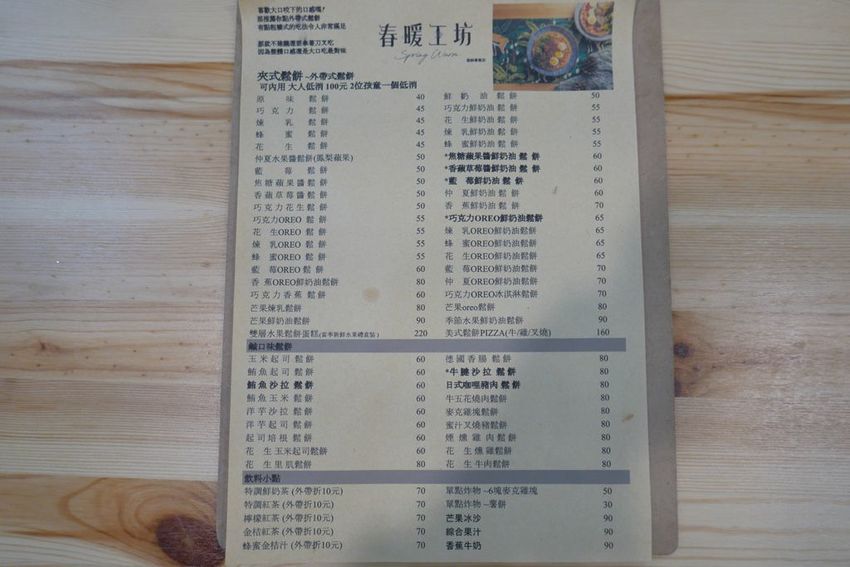 喜歡大口咬下的口感嗎?
那推薦你點外帶式鬆餅
有點粗曠式的吃法令人非常滿足
那就不須麵還要拿著刀叉吃
因為整體口感還是大口吃最對味
春暖工坊
Spring Warm
夾式鬆餅 ~外帶式鬆餅
可內用 大人低消 100元 2位孩童一個低消
原味鬆餅 40
巧克力鬆餅 45
煉乳鬆餅 45
蜂蜜鬆餅 45
花生鬆餅 45
仲夏水果醬鬆餅(鳳梨蘋果) 50
藍莓鬆餅 50
焦糖蘋果醬鬆餅 50
香蘋草莓醬鬆餅 50
巧克力花生鬆餅 50
巧克力OREO 鬆餅 55
花生OREO 鬆餅 55
煉乳OREO 鬆餅 55
蜂蜜OREO 鬆餅 55
藍莓OREO 鬆餅 60
香蕉OREO鮮奶油鬆餅 80
巧克力香蕉鬆餅 60
芒果煉乳鬆餅 80
芒果鮮奶油鬆餅 90
雙層水果鬆餅蛋糕(當季新鮮水果禮盒裝) 220
鮮奶油鬆餅 50
巧克力鮮奶油鬆餅 55
花生鮮奶油鬆餅 55
煉乳鮮奶油鬆餅 55
蜂蜜鮮奶油鬆餅 55
*焦糖蘋果醬鮮奶油鬆餅 60
*香蘋草莓醬鮮奶油鬆餅 60
*藍莓鮮奶油鬆餅 60
仲夏鮮奶油鬆餅 60
香蕉鮮奶油鬆餅 70
*巧克力OREO鮮奶油鬆餅 65
煉乳OREO鮮奶油鬆餅 65
蜂蜜OREO鮮奶油鬆餅 65
花生OREO鮮奶油鬆餅 65
藍莓OREO鮮奶油鬆餅 70
仲夏OREO鮮奶油鬆餅 70
巧克力OREO冰淇淋鬆餅 70
芒果oreo鬆餅 80
季節水果鮮奶油鬆餅 90
美式鬆餅PIZZA(牛/雞/叉燒) 160
鹹口味鬆餅
玉米起司鬆餅 60
鮪魚起司鬆餅 60
鮪魚沙拉鬆餅 60
鮪魚玉米鬆餅 60
洋芋沙拉鬆餅 60
洋芋起司鬆餅 60
起司培根鬆餅 60
花生玉米起司鬆餅 60
花生里肌鬆餅 80
德國香腸鬆餅 80
*牛腱沙拉鬆餅 80
日式咖哩豬肉鬆餅 80
牛五花燒肉鬆餅 80
麥克雞塊鬆餅 80
蜜汁叉燒豬鬆餅 80
煙燻雞肉鬆餅 80
花生燻雞鬆餅 80
花生牛肉鬆餅 80
飲料小點
特調鮮奶茶 (外帶折10元) 70
特調紅茶 (外帶折10元) 70
檸檬紅茶 (外帶折10元) 70
金桔紅茶 (外帶折10元) 70
蜂蜜金桔汁 (外帶折10元) 70
單點炸物 ~6塊麥克雞塊 50
單點炸物 ~薯餅 30
芒果冰沙 90
綜合果汁 90
香蕉牛奶 90